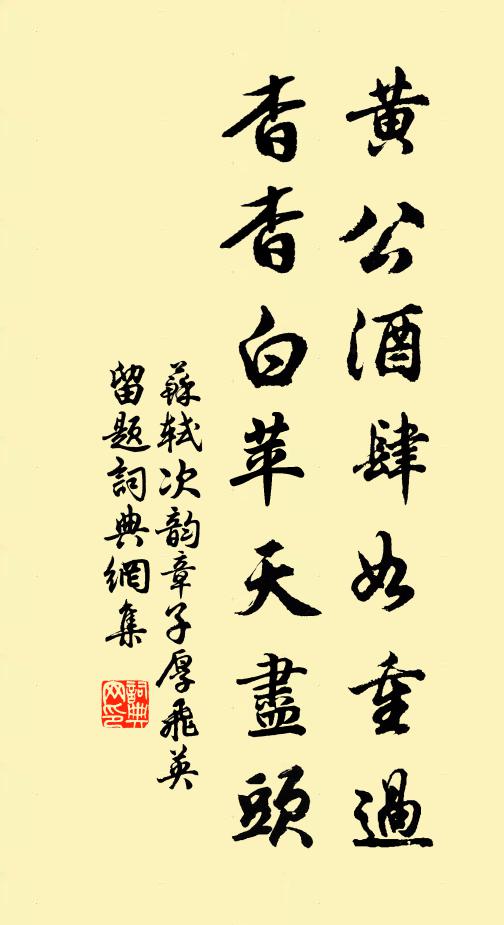 黃公酒肆如重過
杳杳白苹天盡頭
蘇軾次韵章子厚飛英
留題詞典網集
詞典网印